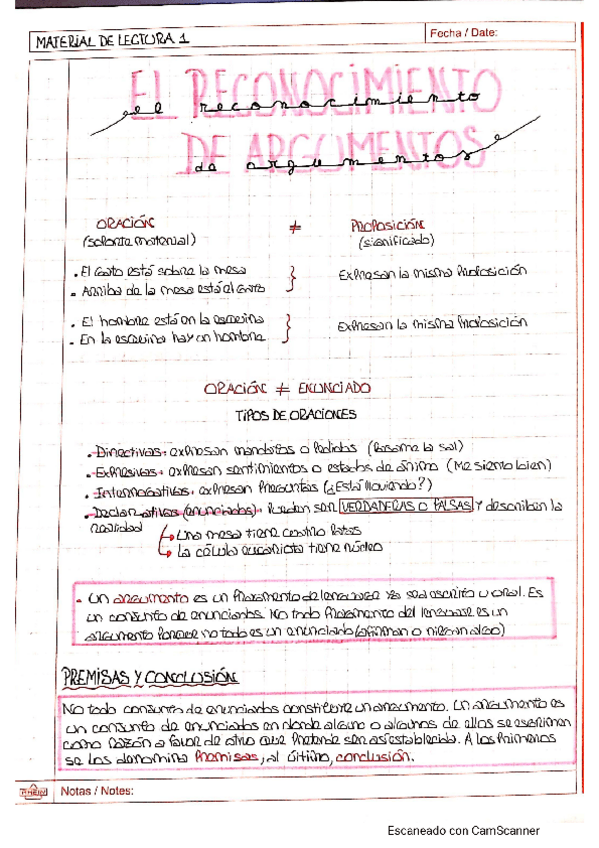 MATERIAL DE LECTURA 1
Fecha / Date:
EL RECONOCIMIENTO
el reconocimiento
DE ARGUMENTOS
de argumentos
ORACIÓN ≠ PROPOSICIÓN
(soporte material) (significado)
• El Gato está sobre la mesa
• Arriba de la mesa está el Gato
Expresan la misma Proposición
• El hombre está en la esquina
• En la esquina hay un hombre
Expresan la misma Proposición
ORACIÓN ≠ ENUNCIADO
TIPOS DE ORACIONES
• Directivas: expresan mandatos o Pedidos (Pasame la sal)
• Expresivas: expresan sentimientos o estados de ánimo (Me siento bien)
• Interrogativas: expresan Preguntas (¿Está lloviendo?)
• Declarativas (enunciados): Pueden ser VERDADERAS O FALSAS y describen la
realidad
↳ Una mesa tiene cuatro Patas
↳ La célula eucariota tiene núcleo
• Un argumento es un fragmento de lenguaje ya sea escrito u oral. Es
un conjunto de enunciados. No todo fragmento del lenguaje es un
argumento Porque no todo es un enunciado (afirman o niegan algo)
PREMISAS Y CONCLUSIÓN
No todo conjunto de enunciados constituye un argumento. Un argumento es
un conjunto de enunciados en donde alguno o algunos de ellos se esgrimen
como razón a favor de otro que Pretende ser así establecido. A los Primeros
se los denomina Premisas, al último, conclusión.
Notas / Notes:
Escaneado con CamScanner